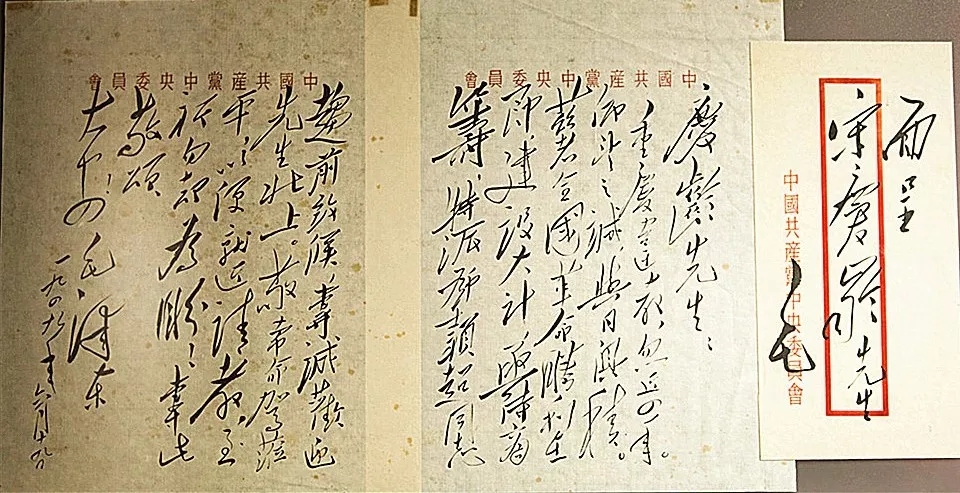 面呈
宋慶齡先生
毛
中國共產黨中央委員會
中國共產黨中央委員會
慶齡先生：
重慶違教，忽近四年。
仰望之誠，與日俱積。
茲者全國革命勝利在
即，建設大計，亟待商
籌，特派鄧穎超同志
中國共產黨中央委員會
趨前致候，專誠歡迎
先生北上。敬希命駕蒞
平，以便就近請教，至
祈勿卻為盼！專此
敬頌
大安！毛澤東
一九四九年六月十九日